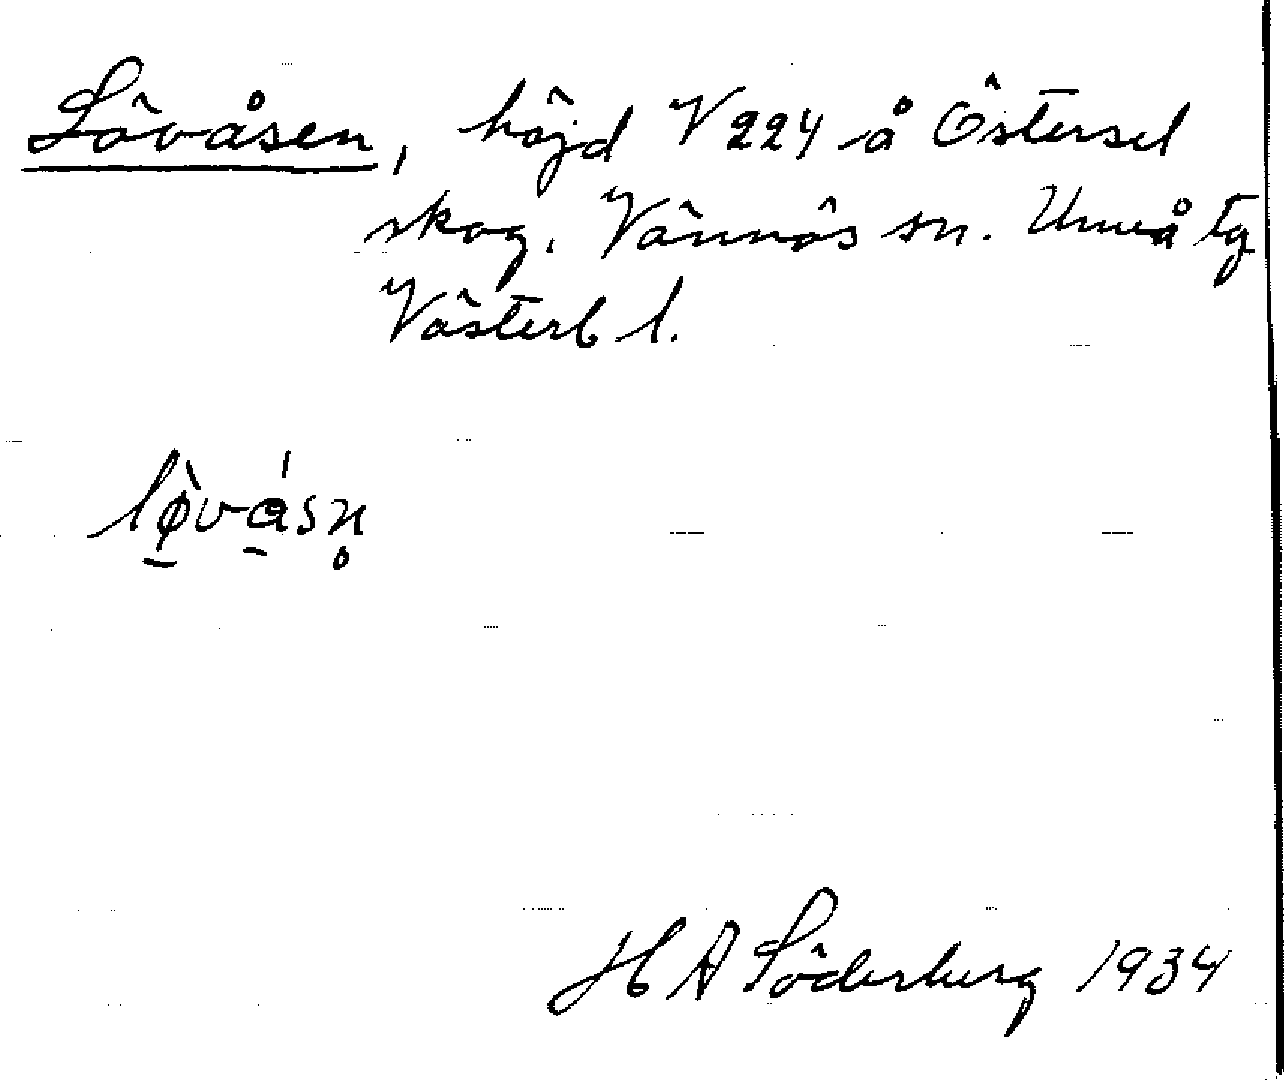 Lövåsen, höjd V 224 å Östersel
skog. Vännäs sn. Umeå tg
Västerb l.
lø̱̀va̱̍sn̥
H A Söderberg 1934